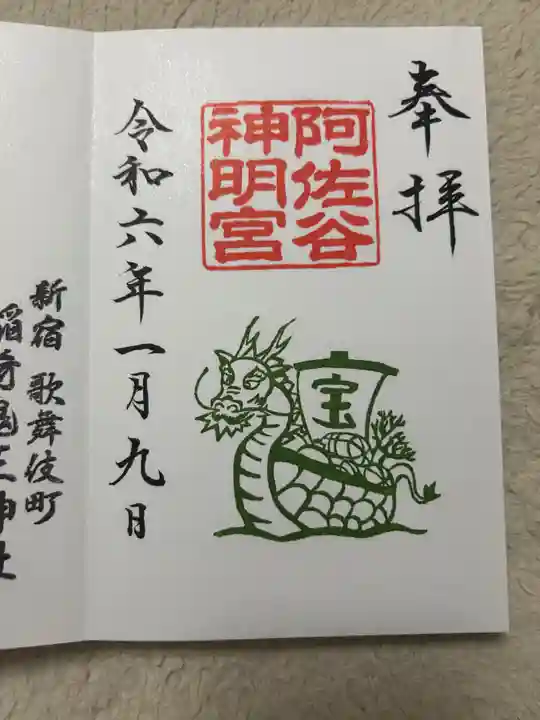 奉拝
阿佐谷
神明宮
宝
令和六年一月九日
新宿 歌舞伎町
稲荷鬼王神社